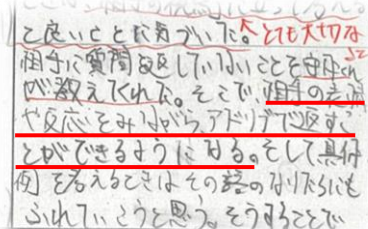 と良いことに気づいた。とても大切な
こと
相手に質問を返していないことを守屋くん
が教えてくれた。そこで、相手の表情
や反応をみながら、アドリブで返すこ
とができるようになる。そして具体
例を考えるときはその話のなりたちにも
ふれていこうと思う。そうすることで